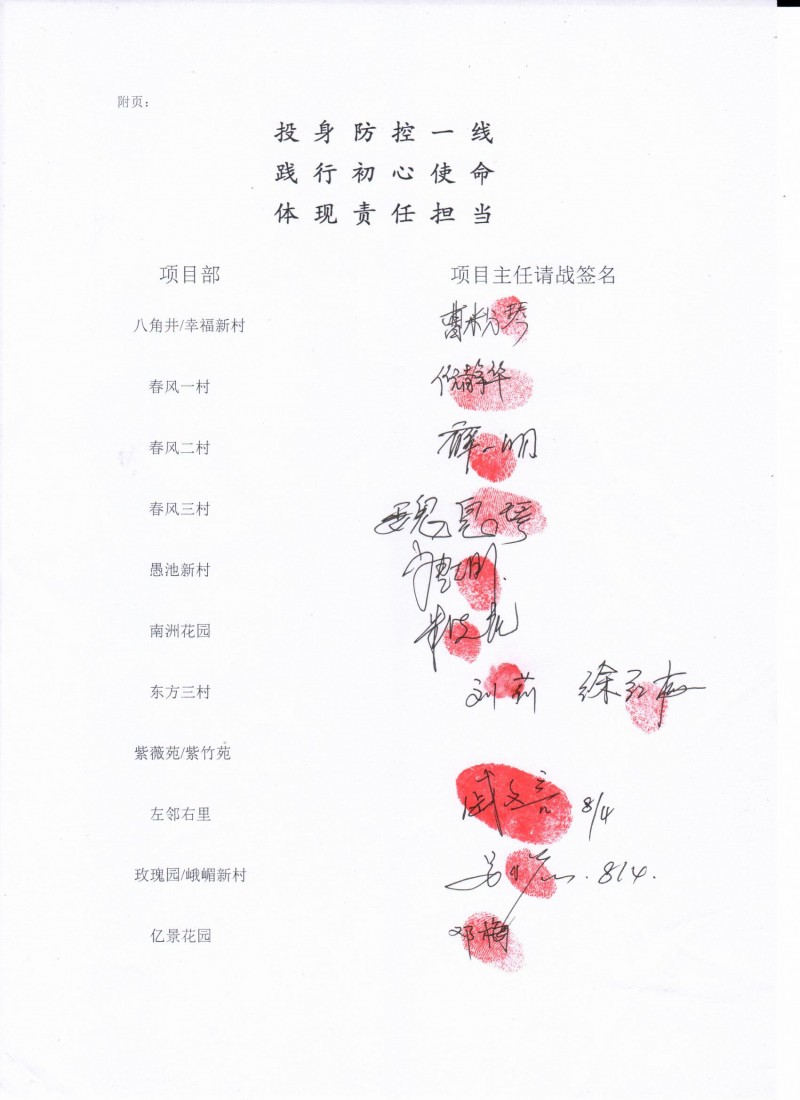 附页：
投身防控一线
践行初心使命
体现责任担当
项目部 项目主任请战签名
八角井/幸福新村 曹粉琴
春风一村 倪静华
春风二村 薛一明
春风三村
愚池新村
南洲花园
东方三村 刘莉 徐红梅
紫薇苑/紫竹苑
左邻右里 8/4
玫瑰园/峨嵋新村 8/4.
亿景花园 邓梅